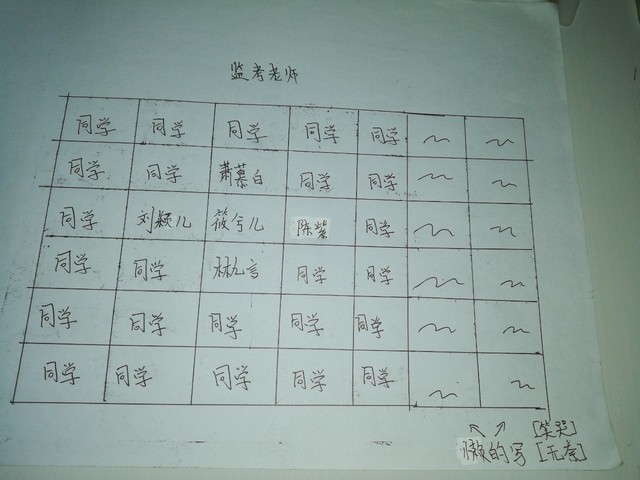 监考老师
同学 同学 同学 同学 同学
同学 同学 萧慕白 同学 同学
同学 刘颖儿 筱兮儿 陈紫 同学
同学 同学 林九言 同学 同学
同学 同学 同学 同学 同学
同学 同学 同学 同学 同学
懒的写 [笑哭]
[无奈]